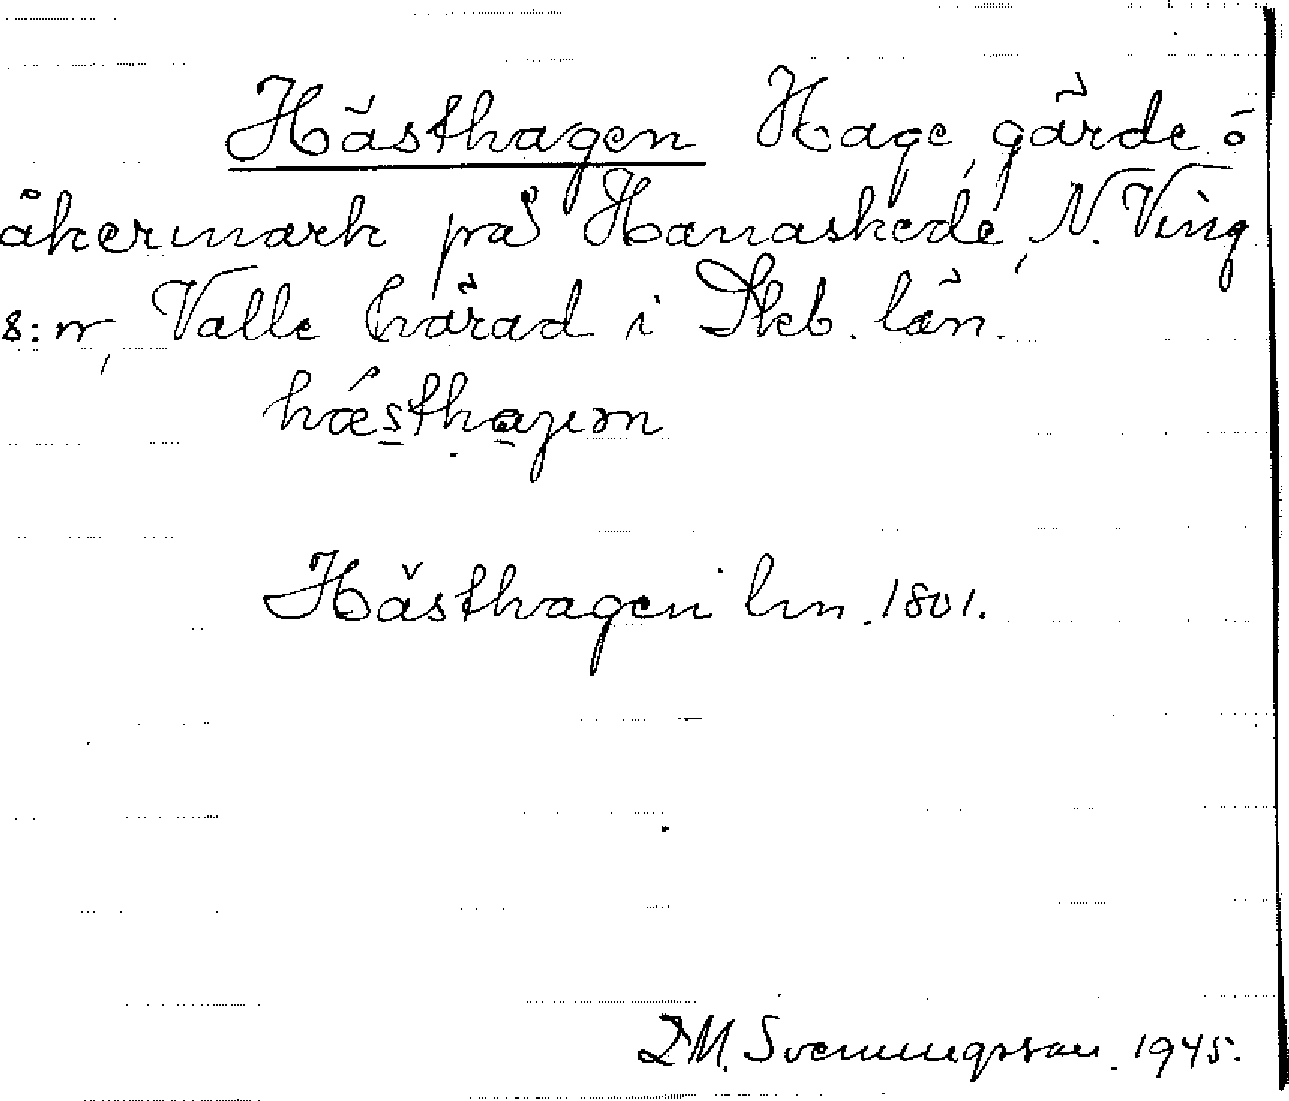 Hästhagen Hage, gärde o
åkermark på Hanaskede, N. Ving
s:n, Valle härad i Skb. län.
hästhagen
Hästhagen hm. 1801.
D.M. Svenningsson. 1945.